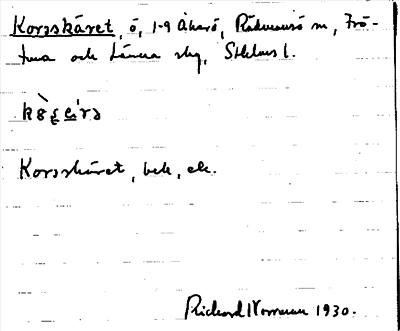 Korsskäret, ö, 1-9 Åkerö, Rådmansö sn, Frö-
tuna och Länna skg, Sthlms l.
Korsskäret, bek, ek.
Richard Norrman 1930.